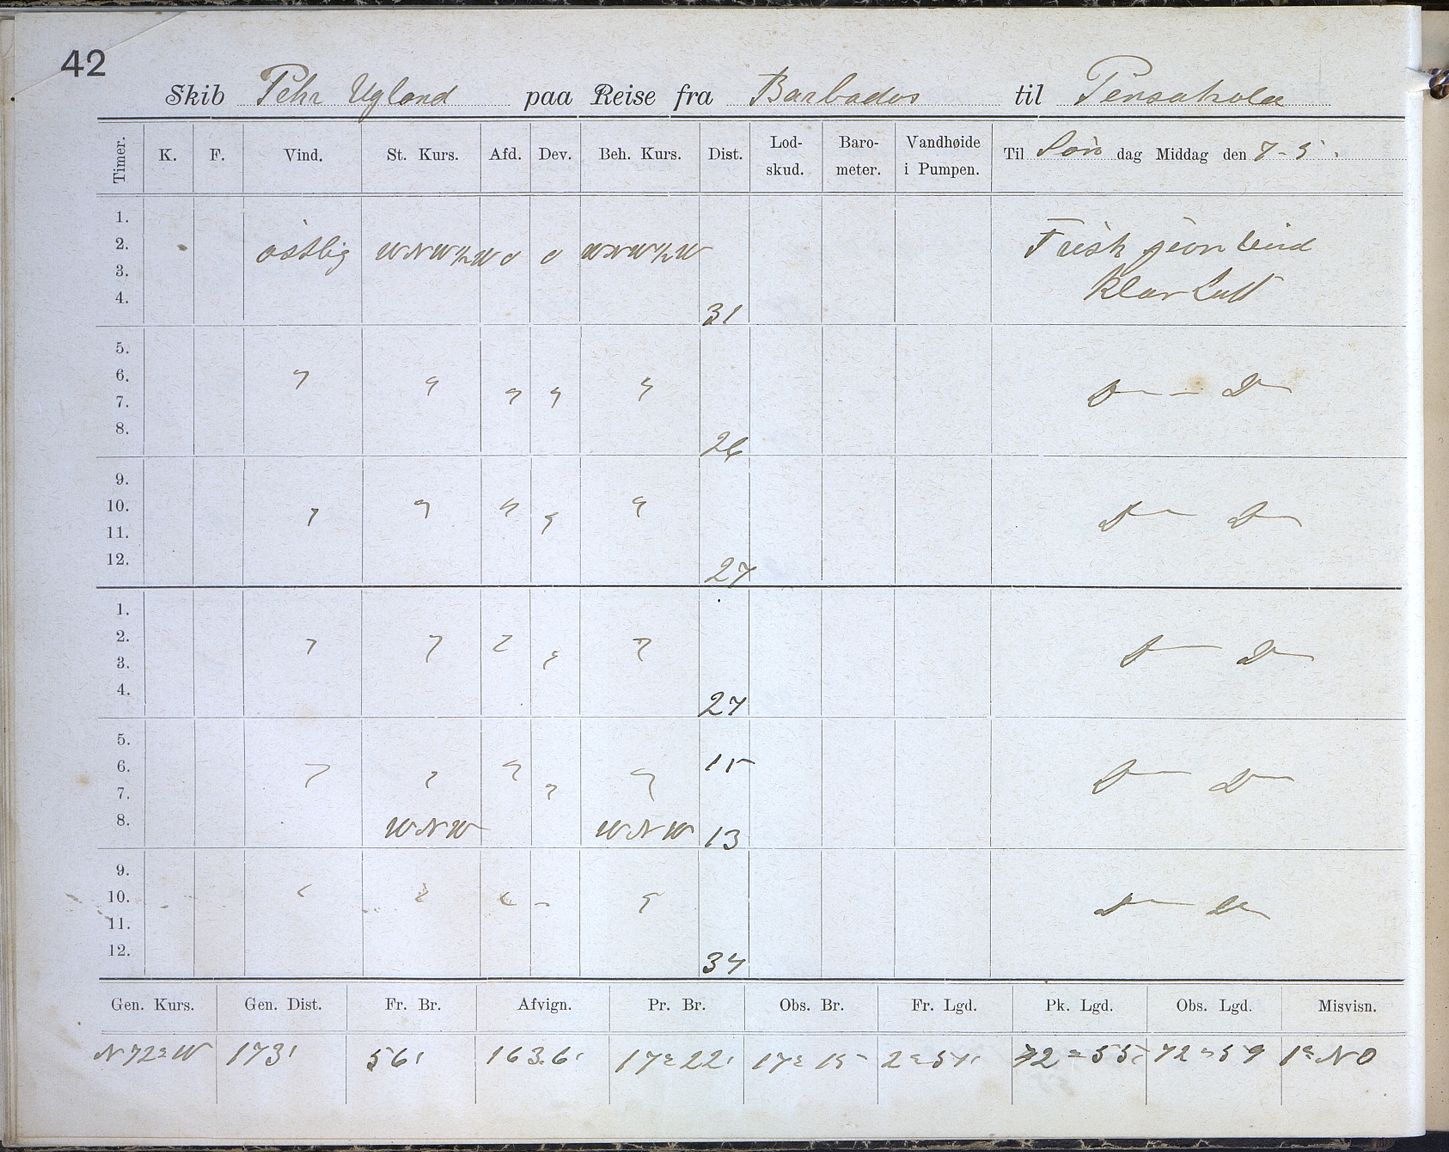 42
Skib Pehr Ugland paa Reise fra Barbados til Pensakola
Timer. K. F. Vind. St. Kurs. Afd. Dev. Beh. Kurs. Dist. Lod-skud. Baro-meter. Vandhøide i Pumpen. Til Søn dag Middag den 7-5.
1.
2. östlig WNW½W 0 0 WNW½W Frisk jevn Vind
3. Klar Luft
4. 31
5.
6. " " " " " D — D
7.
8. 26
9.
10. " " " " " D — D
11.
12. 27
1.
2. " " " " " D — D
3.
4. 27
5.
6. " " " " " 15 D — D
7.
8. WNW WNW 13
9.
10. " " " - " D — D
11.
12. 34
Gen. Kurs. Gen. Dist. Fr. Br. Afvign. Pr. Br. Obs. Br. Fr. Lgd. Pk. Lgd. Obs. Lgd. Misvisn.
N72°W 173' 56' 163.6' 17°22' 17°15 2°51' 72°55' 72°59 1° NO